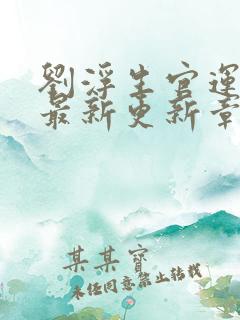 劉浮生官運
最新更新章
某某寶
未經同意禁止轉載